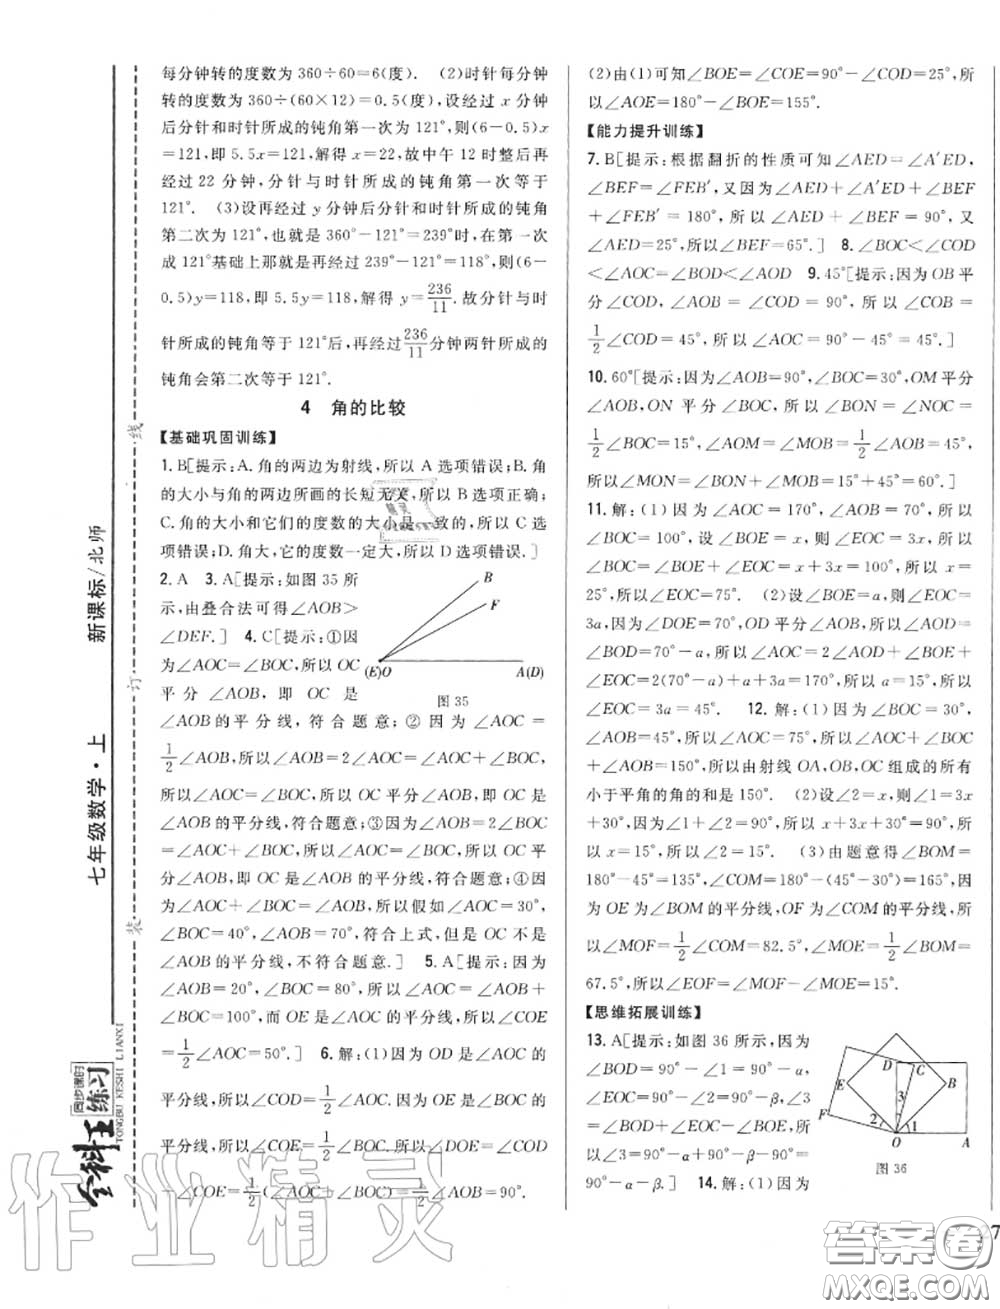 每分钟转的度数为360÷60=6(度).　(2)时针每分钟
转的度数为360÷(60×12)=0.5(度),设经过 x 分钟
后分针和时针所成的钝角第一次为121°,则(6-0.5)x
=121,即5.5x=121,解得 x=22,故中午12时整后再
经过22分钟,分针与时针所成的钝角第一次等于
121°.　(3)设再经过 y 分钟后分针和时针所成的钝角
第二次为121°,也就是360°-121°=239°时,在第一次
成121°基础上那就是再经过239°-121°=118°,则(6-
0.5)y=118,即5.5y=118,解得 y=236/11.故分针与时
针所成的钝角等于121°后,再经过236/11分钟两针所成的
钝角会第二次等于121°.
4　角的比较
【基础巩固训练】
1.B[提示:A.角的两边为射线,所以A选项错误;B.角
的大小与角的两边所画的长短无关,所以B选项正确;
C.角的大小和它们的度数的大小是一致的,所以C选
项错误;D.角大,它的度数一定大,所以D选项错误.]
2.A　3.A[提示:如图35所
示,由叠合法可得∠AOB>
∠DEF.]　4.C[提示:①因
为∠AOC=∠BOC,所以OC
平分∠AOB,即OC是
B
F
(E)O
A(D)
图35
∠AOB的平分线,符合题意;②因为∠AOC=
1/2∠AOB,所以∠AOB=2∠AOC=∠AOC+∠BOC,
所以∠AOC=∠BOC,所以OC平分∠AOB,即OC是
∠AOB的平分线,符合题意;③因为∠AOB=2∠BOC
=∠AOC+∠BOC,所以∠AOC=∠BOC,所以OC平
分∠AOB,即OC是∠AOB的平分线,符合题意;④因
为∠AOC+∠BOC=∠AOB,所以假如∠AOC=30°,
∠BOC=40°,∠AOB=70°,符合上式,但是OC不是
∠AOB的平分线,不符合题意.]　5.A[提示:因为
∠AOB=20°,∠BOC=80°,所以∠AOC=∠AOB+
∠BOC=100°,而OE是∠AOC的平分线,所以∠COE
=1/2∠AOC=50°.]　6.解:(1)因为OD是∠AOC的
平分线,所以∠COD=1/2∠AOC.因为OE是∠BOC的
平分线,所以∠COE=1/2∠BOC.所以∠DOE=∠COD
+∠COE=1/2(∠AOC+∠BOC)=1/2∠AOB=90°.
(2)由(1)可知∠BOE=∠COE=90°-∠COD=25°,所
以∠AOE=180°-∠BOE=155°.
【能力提升训练】
7.B[提示:根据翻折的性质可知∠AED=∠A'ED,
∠BEF=∠FEB',又因为∠AED+∠A'ED+∠BEF
+∠FEB'=180°,所以∠AED+∠BEF=90°,又
∠AED=25°,所以∠BEF=65°.]　8.∠BOC<∠COD
<∠AOC=∠BOD<∠AOD　9.45°[提示:因为OB平
分∠COD,∠AOB=∠COD=90°,所以∠COB=
1/2∠COD=45°,所以∠AOC=90°-45°=45°.]
10.60°[提示:因为∠AOB=90°,∠BOC=30°,OM平分
∠AOB,ON平分∠BOC,所以∠BON=∠NOC=
1/2∠BOC=15°,∠AOM=∠MOB=1/2∠AOB=45°,
所以∠MON=∠BON+∠MOB=15°+45°=60°.]
11.解:(1)因为∠AOC=170°,∠AOB=70°,所以
∠BOC=100°,设∠BOE=x,则∠EOC=3x,所以
∠BOC=∠BOE+∠EOC=x+3x=100°,所以x=
25°,所以∠EOC=75°.　(2)设∠BOE=a,则∠EOC=
3a,因为∠DOE=70°,OD平分∠AOB,所以∠AOD=
∠BOD=70°-a,所以∠AOC=2∠AOD+∠BOE+
∠EOC=2(70°-a)+a+3a=170°,所以a=15°,所以
∠EOC=3a=45°.　12.解:(1)因为∠BOC=30°,
∠AOB=45°,所以∠AOC=75°,所以∠AOC+∠BOC+
∠AOB=150°,所以由射线OA,OB,OC组成的所有
小于平角的角的和是150°.　(2)设∠2=x,则∠1=3x
+30°,因为∠1+∠2=90°,所以x+3x+30°=90°,所
以x=15°,所以∠2=15°.　(3)由题意得∠BOM=
180°-45°=135°,∠COM=180°-(45°-30°)=165°,因
为OE为∠BOM的平分线,OF为∠COM的平分线,所
以∠MOF=1/2∠COM=82.5°,∠MOE=1/2∠BOM=
67.5°,所以∠EOF=∠MOF-∠MOE=15°.
【思维拓展训练】
13.A[提示:如图36所示.因为
∠BOD=90°-∠1=90°-α,
∠EOC=90°-∠2=90°-β,
∠3=∠BOD+∠EOC-∠BOE,
所以∠3=90°-α+90°-β-90°=
90°-α-β.]　14.解:(1)因为
D
C
E
B
F
3
2
1
O
A
图36
新课标/北师
七年级数学·上
线
订
装
全科王
同步课时
练习
TONGBU KESHI LIANXI
作业精灵
答案圈
MXQE.COM
7